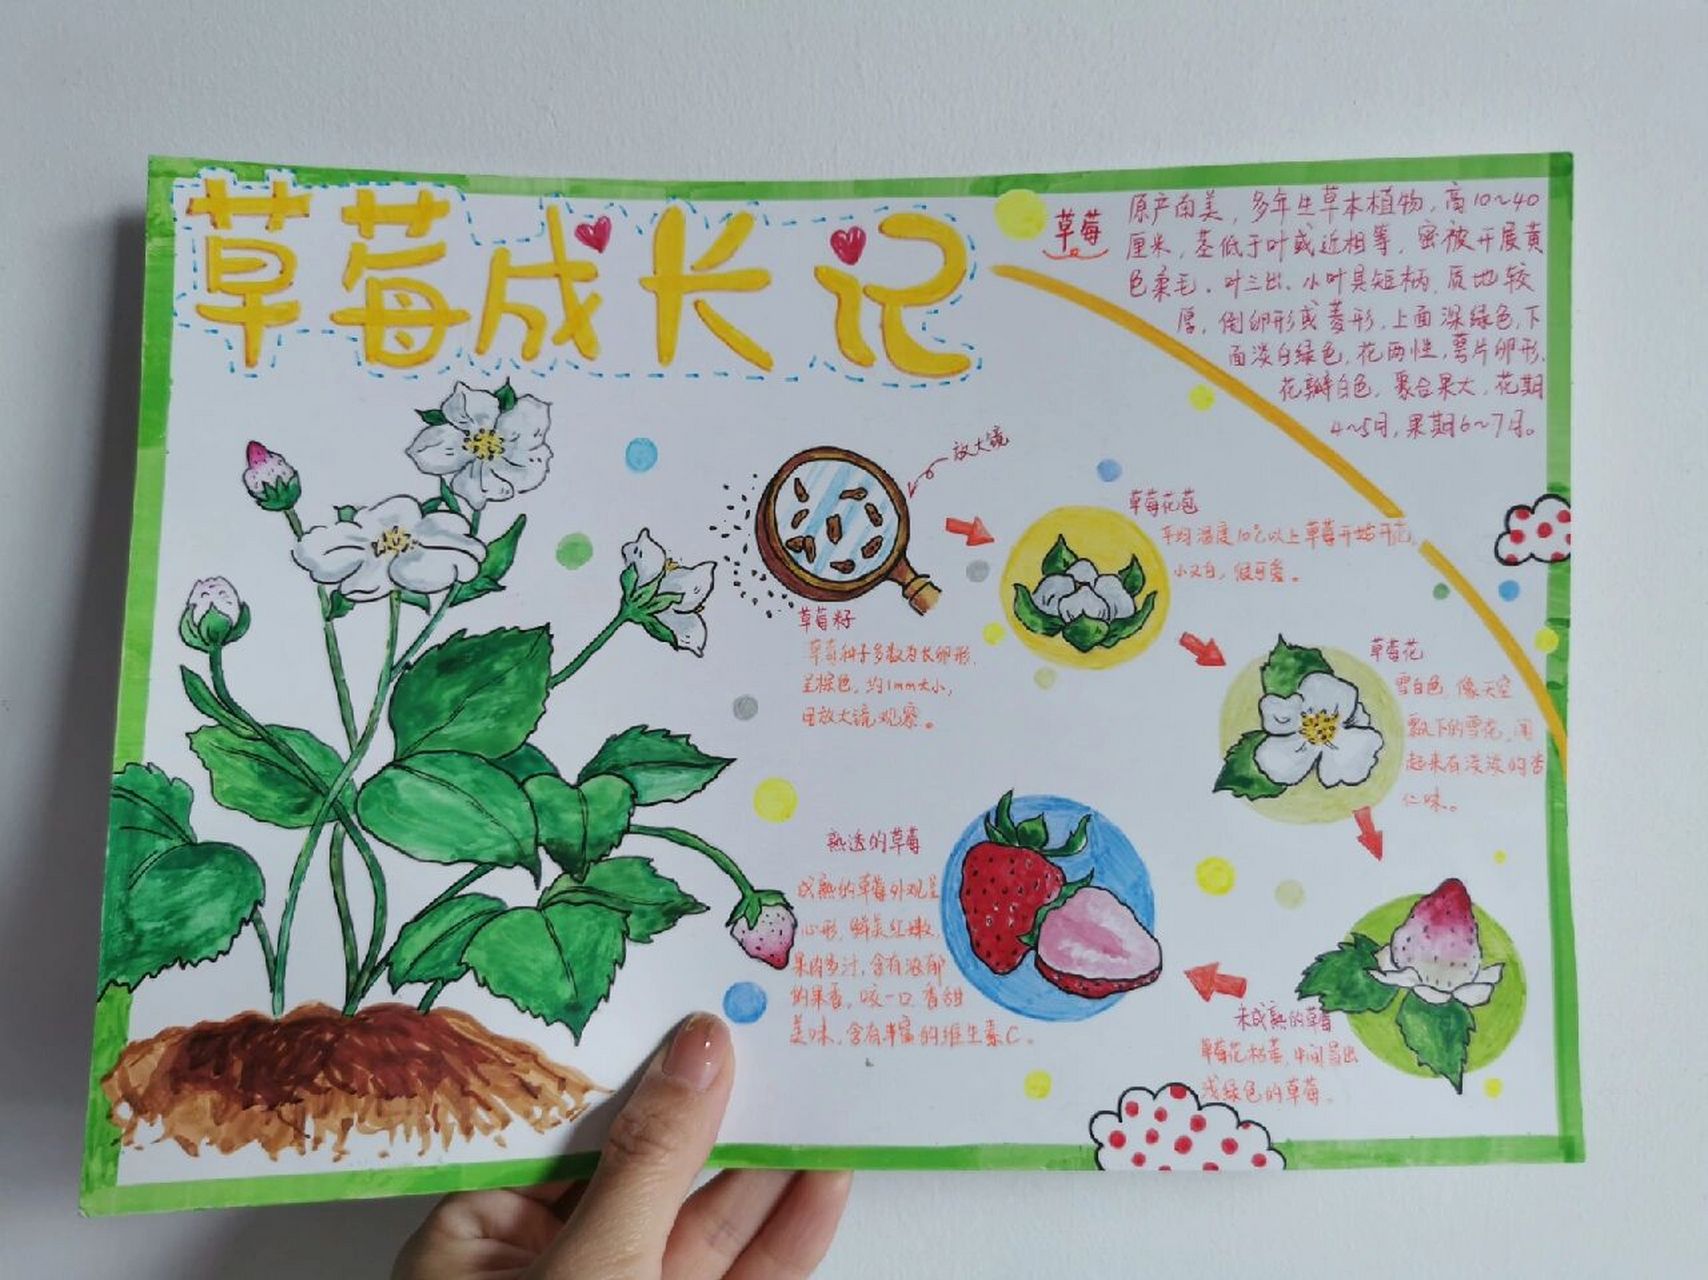 草莓成长记
草莓
原产南美，多年生草本植物，高10~40
厘米，茎低于叶或近相等，密被开展黄
色柔毛。叶三出，小叶具短柄，质地较
厚，倒卵形或菱形，上面深绿色，下
面淡白绿色，花两性，萼片卵形，
花瓣白色，聚合果大，花期
4~5月，果期6~7月。
放大镜
草莓籽
草莓种子多数为长卵形，
呈棕色，约1mm大小，
用放大镜观察。
草莓花苞
平均温度10℃以上草莓开始开花，
小又白，很可爱。
草莓花
雪白色，像天空
飘下的雪花，闻
起来有淡淡的杏
仁味。
未成熟的草莓
草莓花枯萎，中间冒出
浅绿色的草莓。
熟透的草莓
成熟的草莓外观呈
心形，鲜美红嫩，
果肉多汁，含有浓郁
的果香，咬一口香甜
美味，含有丰富的维生素C。